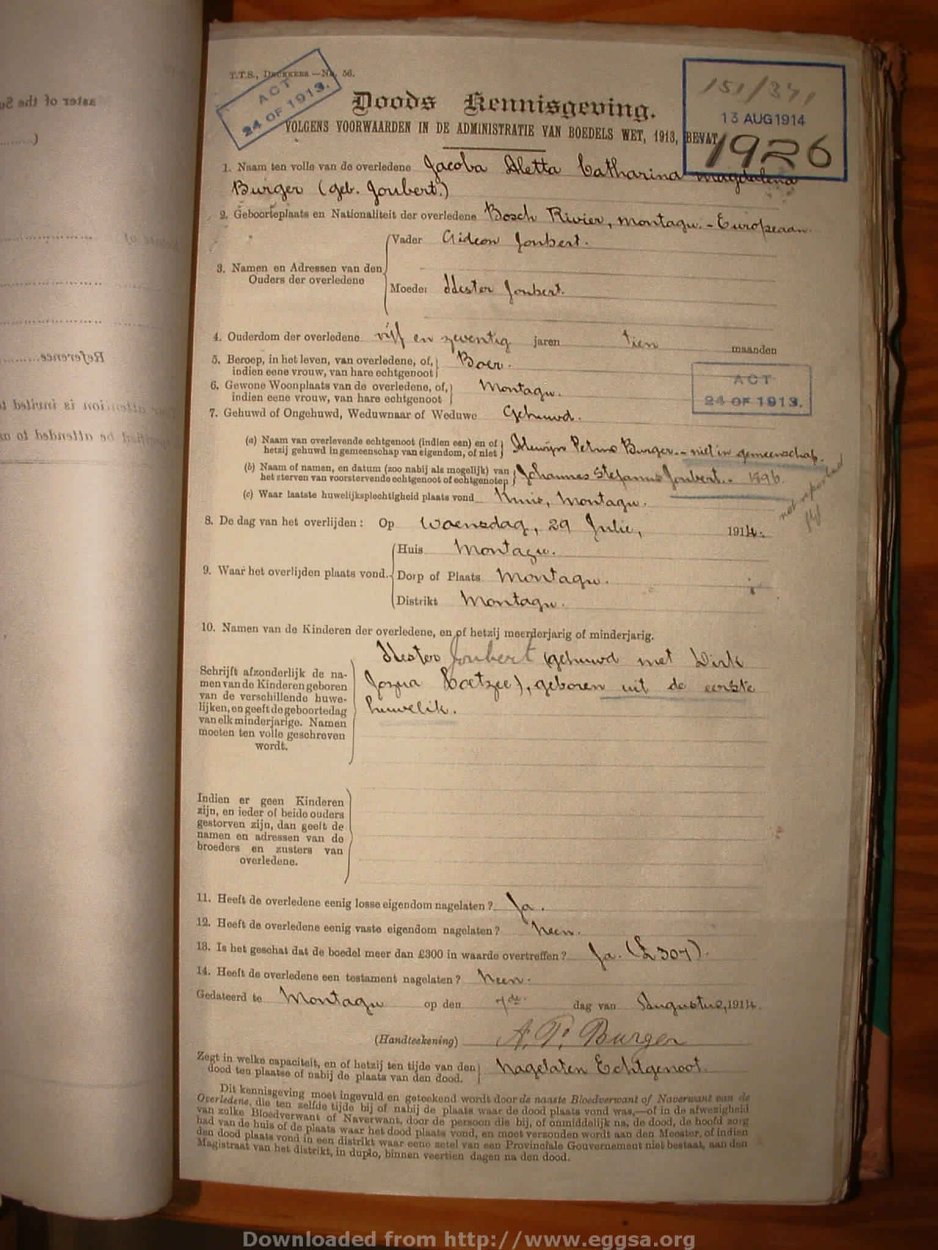 T.T.S., DRUKKERS —No. 56.
ACT
24 OF 1913.
151/341
13 AUG 1914
1926
Doods Kennisgeving.
VOLGENS VOORWAARDEN IN DE ADMINISTRATIE VAN BOEDELS WET, 1913, BEVAT
1. Naam ten volle van de overledene Jacoba Aletta Catharina Magdalena
Burger (geb. Joubert.)
2. Geboorteplaats en Nationaliteit der overledene Bosch Rivier, Montagu. - Europeaan.
3. Namen en Adressen van den Ouders der overledene
Vader Gideon Joubert.
Moeder Hester Joubert.
4. Ouderdom der overledene vijf en zeventig jaren tien maanden
5. Beroep, in het leven, van overledene, of,
indien eene vrouw, van hare echtgenoot Boer.
6. Gewone Woonplaats van de overledene, of,
indien eene vrouw, van hare echtgenoot Montagu.
ACT
24 OF 1913.
7. Gehuwd of Ongehuwd, Weduwnaar of Weduwe Gehuwd.
(a) Naam van overlevende echtgenoot (indien een) en of
hetzij gehuwd in gemeenschap van eigendom, of niet Petrus Burger - niet in gemeenschap.
(b) Naam of namen, en datum (zoo nabij als mogelijk) van
het sterven van voorstervende echtgenoot of echtgenoten Johannes Stefanus Joubert. - 1896.
(c) Waar laatste huwelijksplechtigheid plaats vond Montagu.
8. De dag van het overlijden: Op Woensdag, 29 Julie, 1914.
9. Waar het overlijden plaats vond.
Huis Montagu.
Dorp of Plaats Montagu.
Distrikt Montagu.
10. Namen van de Kinderen der overledene, en of hetzij meerderjarig of minderjarig.
Hester Joubert (gehuwd met Dirk
Schrijft afzonderlijk de na-
men van de Kinderen geboren
van de verschillende huwe-
lijken, en geeft de geboortedag
van elk minderjarige. Namen
moeten ten volle geschreven
wordt.
Josua Coetzee), geboren uit de eerste
huwelik.
Indien er geen Kinderen
zijn, en ieder of beide ouders
gestorven zijn, dan geeft de
namen en adressen van de
broeders en zusters van
overledene.
11. Heeft de overledene eenig losse eigendom nagelaten? Ja.
12. Heeft de overledene eenig vaste eigendom nagelaten? Neen.
13. Is het geschat dat de boedel meer dan £300 in waarde overtreffen? Ja. (£307).
14. Heeft de overledene een testament nagelaten? Neen.
Gedateerd te Montagu op den 7de dag van Augustus, 1914.
(Handteekening) A. P. Burger
Zegt in welke capaciteit, en of hetzij ten tijde van den
dood ten plaatse of nabij de plaats van den dood. Nagelaten Echtgenoot.
Dit kennisgeving moet ingevuld en geteekend wordt door de naaste Bloedverwant of Naverwant van de
Overledene, die ten zelfde tijde bij of nabij de plaats waar de dood plaats vond was,—of in de afwezigheid
van zulke Bloedverwant of Naverwant, door de persoon die bij, of onmiddelijk na, de dood, de hoofd zorg
had van de huis of de plaats waar het dood plaats vond, en moet verzonden wordt aan den Meester, of indien
den dood plaats vond in een distrikt waar eene zetel van een Provinciale Gouvernement niet bestaat, aan den
Magistraat van het distrikt, in duplo, binnen veertien dagen na den dood.
Downloaded from http://www.eggsa.org